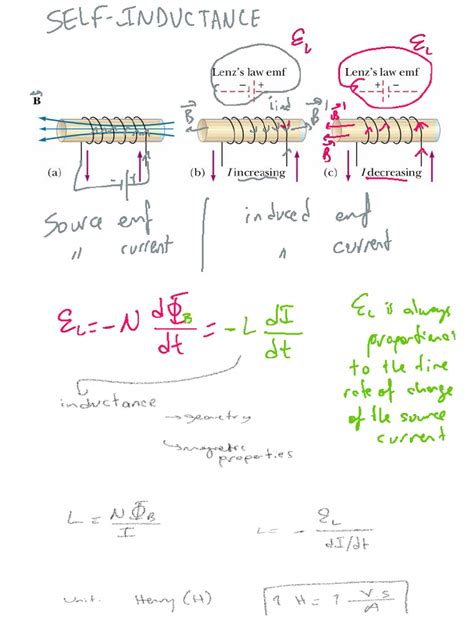 SELF-INDUCTANCE
Ɛ_L
Ɛ_L
Lenz's law emf
Lenz's law emf
- +
B
B
Iind
B
(a)
(b)
I increasing
(c)
I decreasing
Source emf
" current
induced emf
" current
Ɛ_L = -N dΦ_B/dt = -L dI/dt
Ɛ_L is always
proportional
to the time
rate of change
of the source
current
inductance
→ geometry
magnetic
properties
L = NΦ_B/I
L = - Ɛ_L/(dI/dt)
Unit: Henry (H)
1 H = 1 V s/A